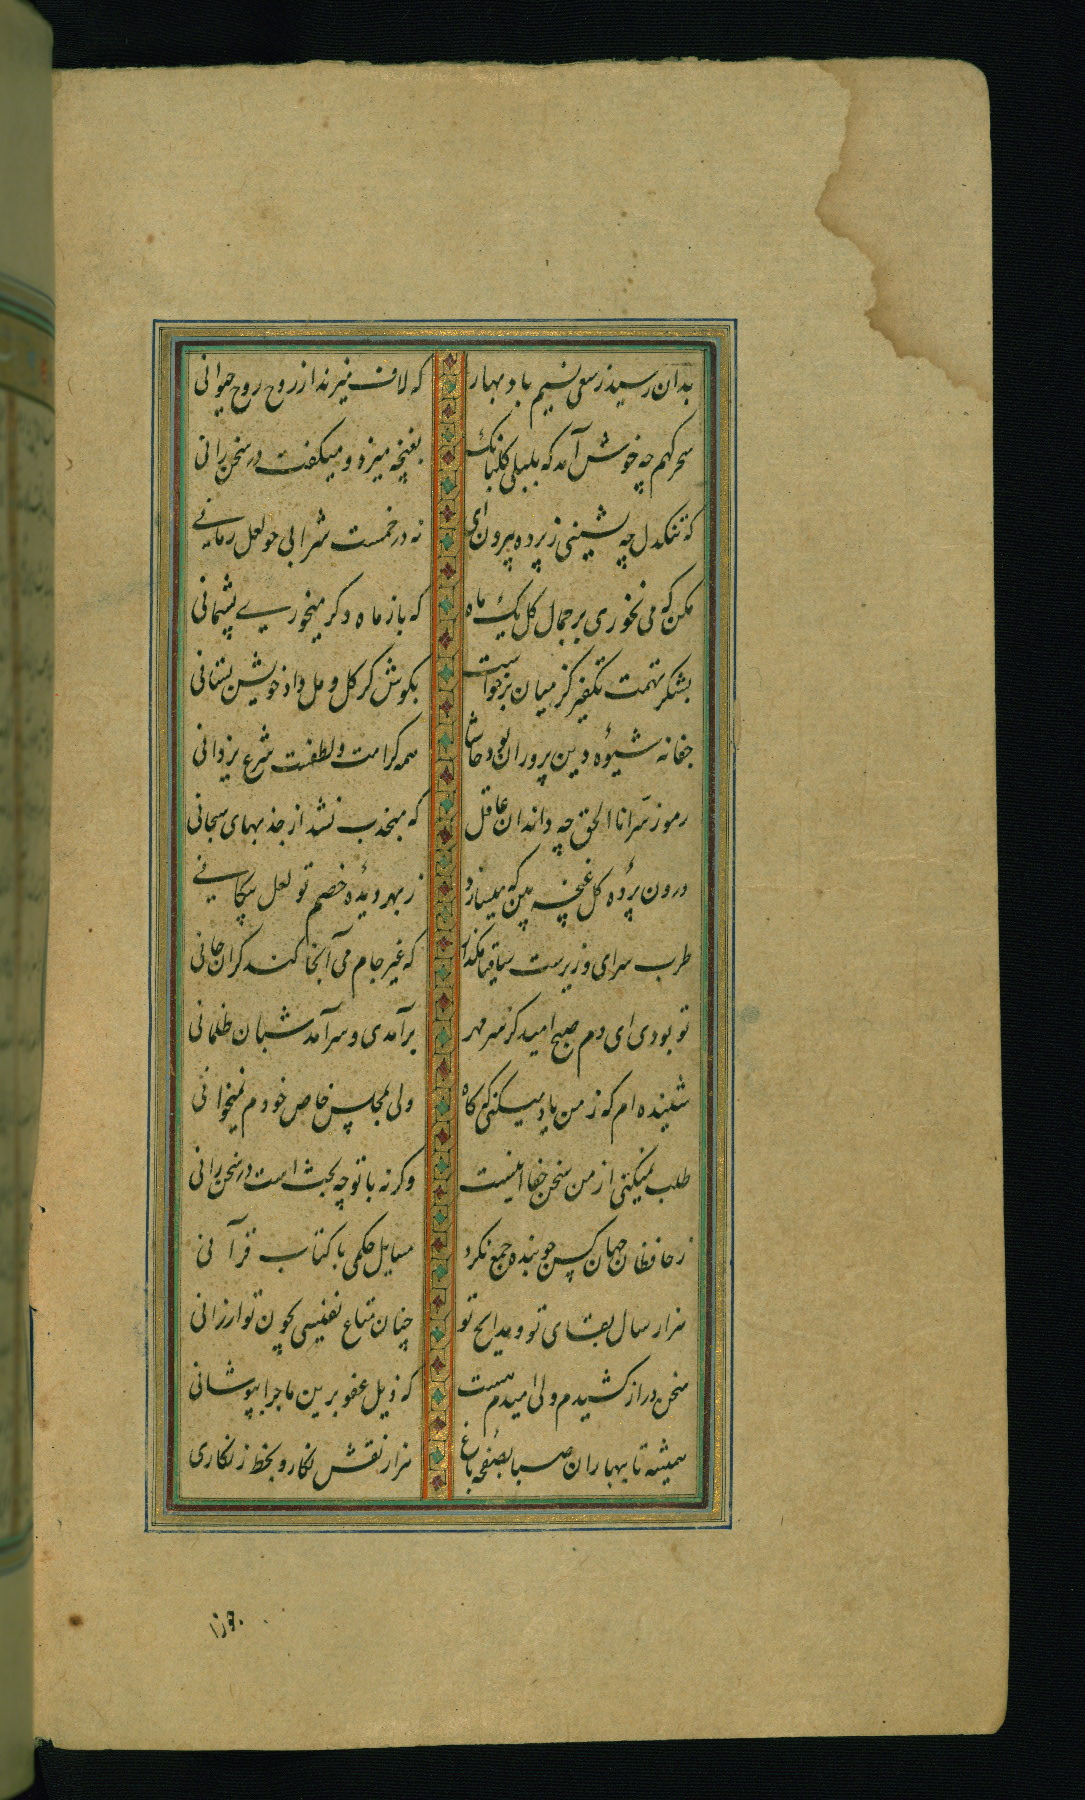 بدان رسید ز سعی نسیم باد بهار که لاف میزند از روح روح حیوانی
سحرگهم چه خوش آمد که بلبلی گلبانگ بغنچه میزد و میگفت در سخن رانی
که تنگدل چه نشینی ز پرده بیرون ای نه در خمست شرابی چو لعل رمانی
مکن که می نخوری بر جمال گل یک ماه که باز ماه دگر میخوری پشیمانی
بشکر تهمت تکفیر کز میان برخواست بکوش کز گل و مل داد خویش بستانی
جفا نه شیوهٔ دین پروران بود حاشا همه کرامت و لطفست شرع یزدانی
رموز سر انا الحق چه داند ان غافل که منجذب نشد از جذبهای سبحانی
درون پردهٔ گل غنچه بین که میسازد ز بهر دیدهٔ خصم تو لعل پیکانی
طرب سرای وزیرست ساقیا مگذار که غیر جام می آنجا کند گران جانی
تو بودی ای دم صبح امید کز سر مهر برآمدی و سر آمد شبان ظلمانی
شنیده ام که ز من یاد میکنی که گاه ولی بمجلس خاص خودم نمیخوانی
طلب نمیکنی از من سخن جفا اینست وگرنه با تو چه بحث است در سخن رانی
ز حافظان جهان کس چو بنده جمع نکرد مسایل حکمی با کتاب قرآنی
هزار سال بقای تو و مدایح تو چنان متاع نفیسی بچون تو ارزانی
سخن دراز کشیدم ولی امیدم هست که ذیل عفو برین ماجرا بپوشانی
همیشه تا ببهاران صبا بصفحه باغ هزار نقش نگارد بخط زنکاری